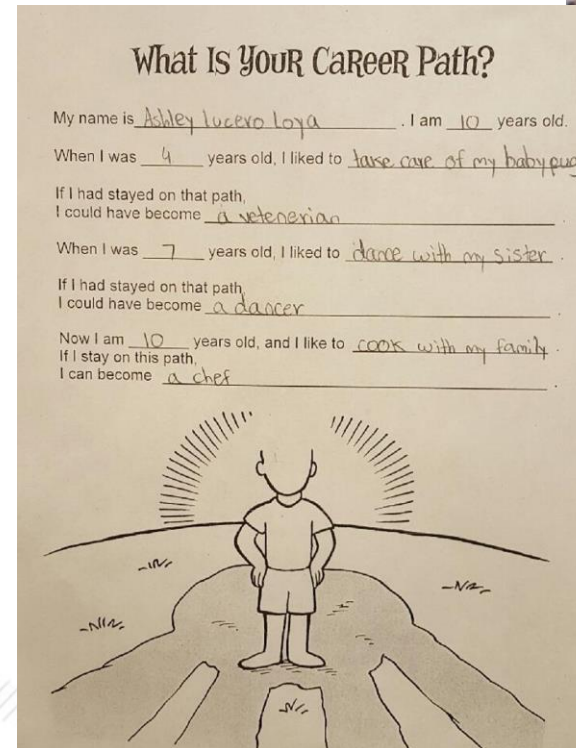 What Is YouR CaReeR Path?
My name is Ashley lucero Loya . I am 10 years old.
When I was 4 years old, I liked to take care of my baby pug
If I had stayed on that path,
I could have become a vetenerian .
When I was 7 years old, I liked to dance with my sister .
If I had stayed on that path,
I could have become a dancer .
Now I am 10 years old, and I like to cook with my family .
If I stay on this path,
I can become a chef .